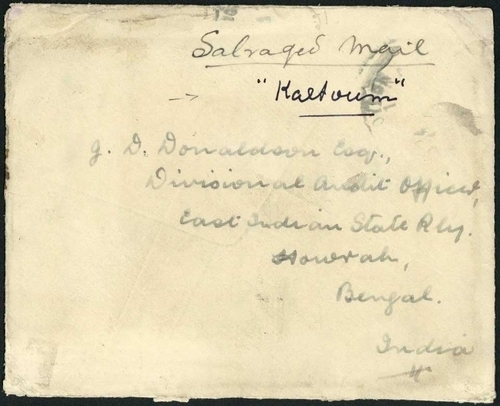 Salvaged Mail
"Kaltoum"
G. D. Donaldson Esq.,
Divisional Audit Officer,
East Indian State Rly.
Howrah,
Bengal.
India